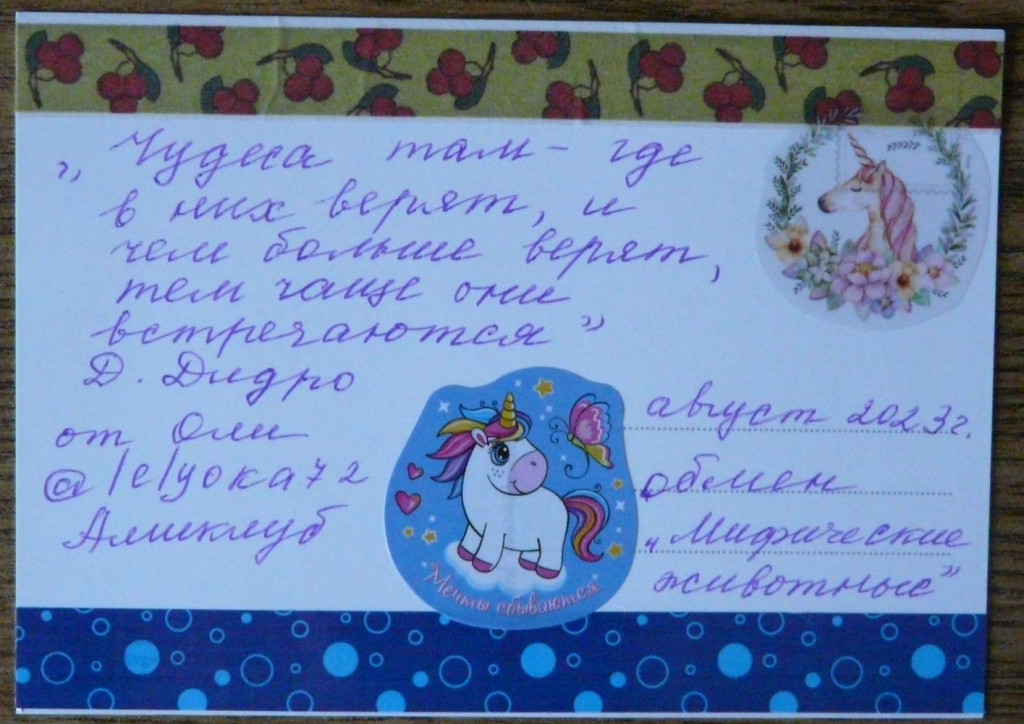 „Чудеса там - где
в них верят, и
чем больше верят,
тем чаще они
встречаются”
Д. Дидро
от Оли
@lelyoka72
Аликлуб
Мечты сбываются
август 2023г.
обмен
„Мифические
животные”